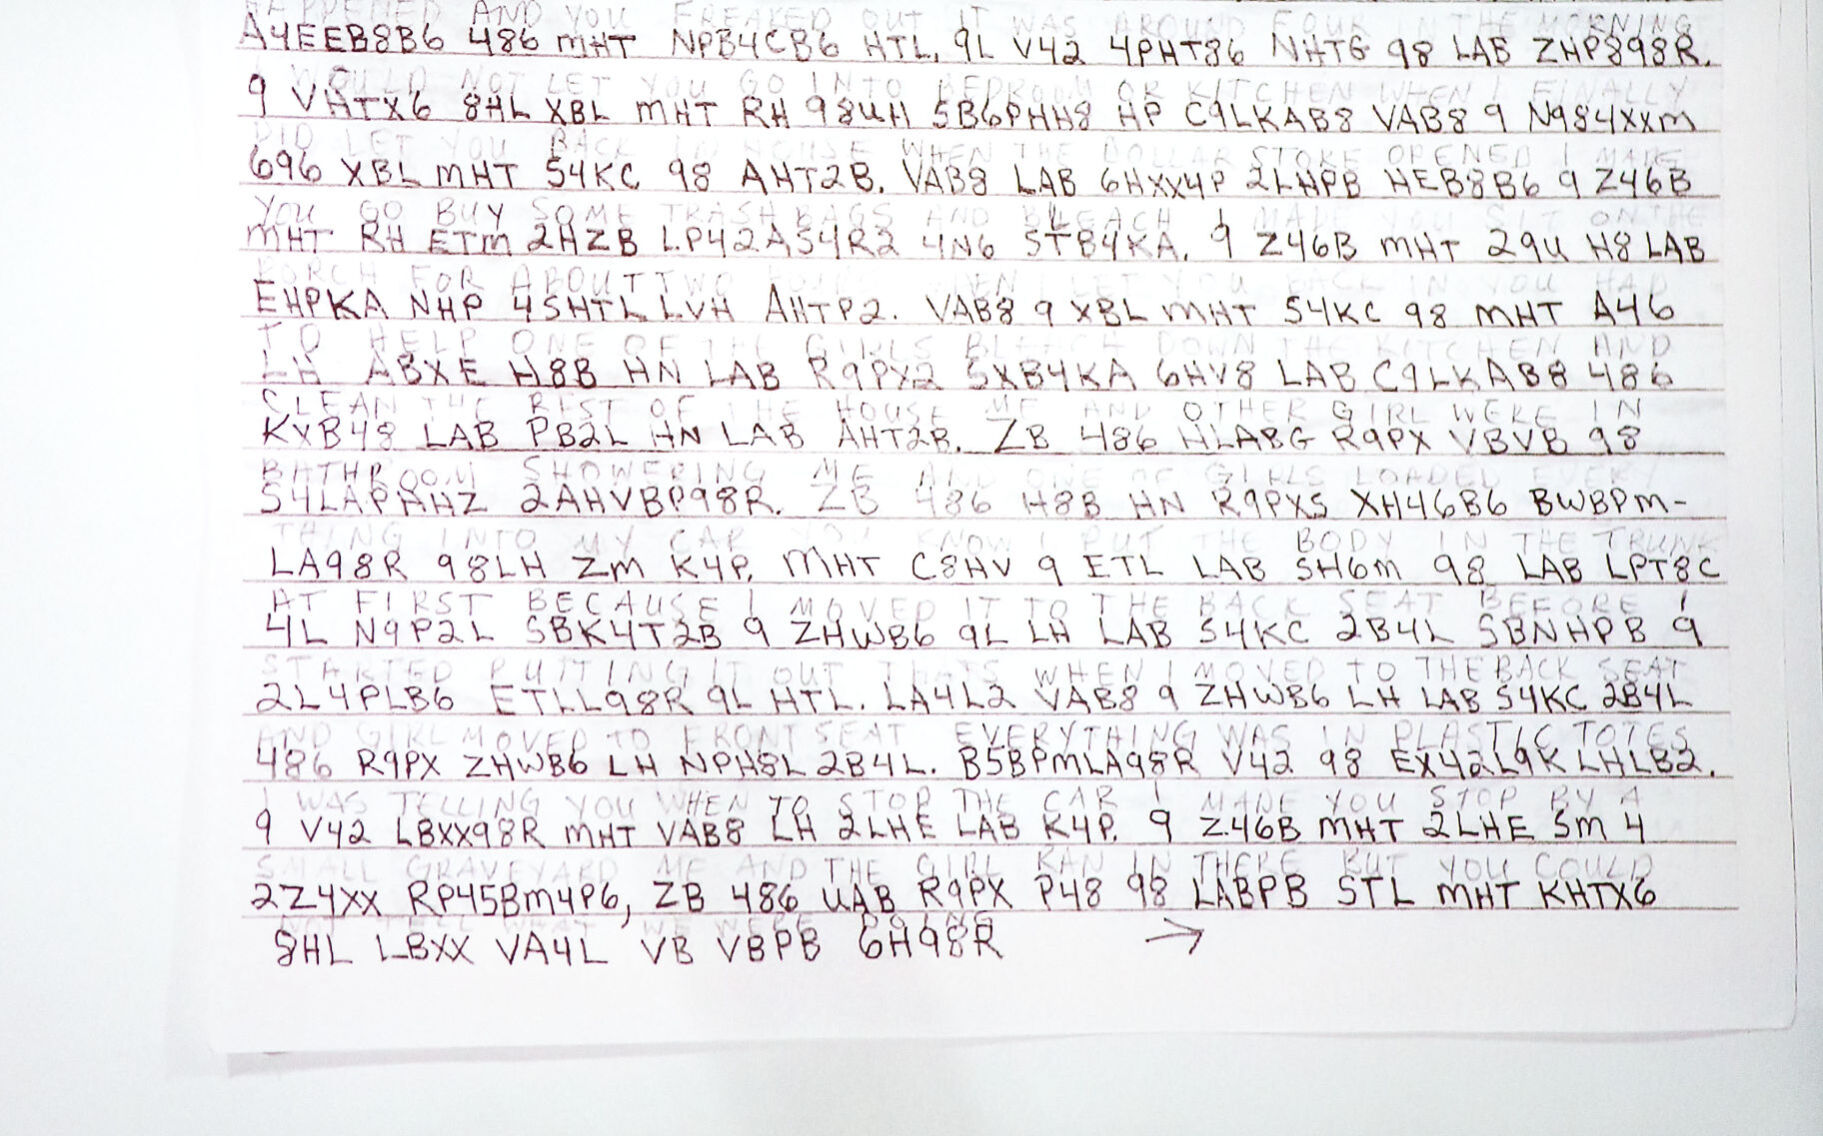 HAPPENED AND YOU FREAKED OUT IT WAS AROUND FOUR IN THE MORNING
A4EEB8B6 486 MHT NPB4CB6 HTL, 9L V42 4PHT86 NHTG 98 LAB ZHP898R.
I WOULD NOT LET YOU GO INTO BEDROOM OR KITCHEN WHEN I FINALLY
9 VHTX6 8HL XBL MHT RH 98UH 5B6PHH8 HP C9LKAB8 VAB8 9 N984XXM
DID LET YOU BACK IN HOUSE WHEN THE DOLLAR STORE OPENED I MADE
696 XBL MHT 54KC 98 AHT2B. VAB8 LAB 6HXX4P 2LHPB HEB8B6 9 Z46B
YOU GO BUY SOME TRASH BAGS AND BLEACH I MADE YOU SIT ON THE
MHT RH ETM 2HZB LP42A54R2 4N6 STB4KA. 9 Z46B MHT 29U H8 LAB
PORCH FOR ABOUT TWO WHEN I LET YOU BACK IN YOU HAD
EHPKA NHP 45HTL LVH AHTP2. VAB8 9 XBL MHT 54KC 98 MHT A46
TO HELP ONE OF THE GIRLS BLEACH DOWN THE KITCHEN AND
LH ABXE H8B HN LAB R9PX2 5XB4KA 6HV8 LAB C9LKAB8 486
CLEAN THE REST OF THE HOUSE ME AND OTHER GIRL WERE IN
KXB48 LAB PB2L HN LAB AHT2B. ZB 486 HLABG R9PX VBVB 98
BATHROOM SHOWERING ME AND ONE OF GIRLS LOADED EVERY
54LAPHHZ 2AHVBP98R. ZB 486 H8B HN R9PXS XH46B6 BWBPM-
THING INTO MY CAR YOU KNOW I PUT THE BODY IN THE TRUNK
LA98R 98LH ZM K4P. MHT C8HV 9 ETL LAB SH6M 98 LAB LPT8C
AT FIRST BECAUSE I MOVED IT TO THE BACK SEAT BEFORE I
4L N9P2L SBK4T2B 9 ZHWB6 9L LH LAB 54KC 2B4L SBNHPB 9
STARTED PUTTING IT OUT THATS WHEN I MOVED TO THE BACK SEAT
2L4PLB6 ETLL98R 9L HTL. LA4L2 VAB8 9 ZHWB6 LH LAB 54KC 2B4L
AND GIRL MOVED TO FRONT SEAT EVERYTHING WAS IN PLASTIC TOTES
486 R9PX ZHWB6 LH NPH8L 2B4L. B5BPMLA98R V42 98 EX42L9K LHLB2.
I WAS TELLING YOU WHEN TO STOP THE CAR I MADE YOU STOP BY A
9 V42 LBXX98R MHT VAB8 LH 2LHE LAB K4P. 9 Z46B MHT 2LHE 5M 4
SMALL GRAVEYARD ME AND THE GIRL RAN IN THERE BUT YOU COULD
2Z4XX RP45BM4P6, ZB 486 UAB R9PX P48 98 LABPB STL MHT KHTX6
NOT TELL WHAT WE WERE DOING
8HL LBXX VA4L VB VBPB 6H98R →